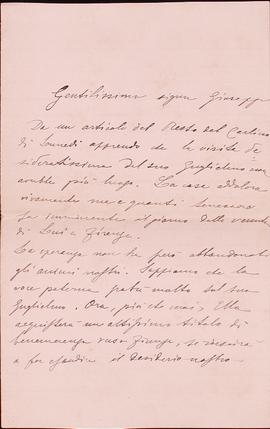 Gentilissimo signor Giuseppe
Da un articolo del Resto del Carlino
di Lunedì apprendo che la visita de
sideratissima del suo Guglielmo non
avrebbe più luogo. La cosa addolora
vivamente me e quanti
imminente il giorno della venuta
di Lui a Firenze.
La speranza non ha però abbandonato
gli animi nostri. Sappiamo che la
voce paterna potrà molto sul suo
Guglielmo. Ora, più che mai, Ella
acquisterà un altissimo titolo di
benemerenza verso Firenze, se riescirà
a far esaudire il desiderio nostro.